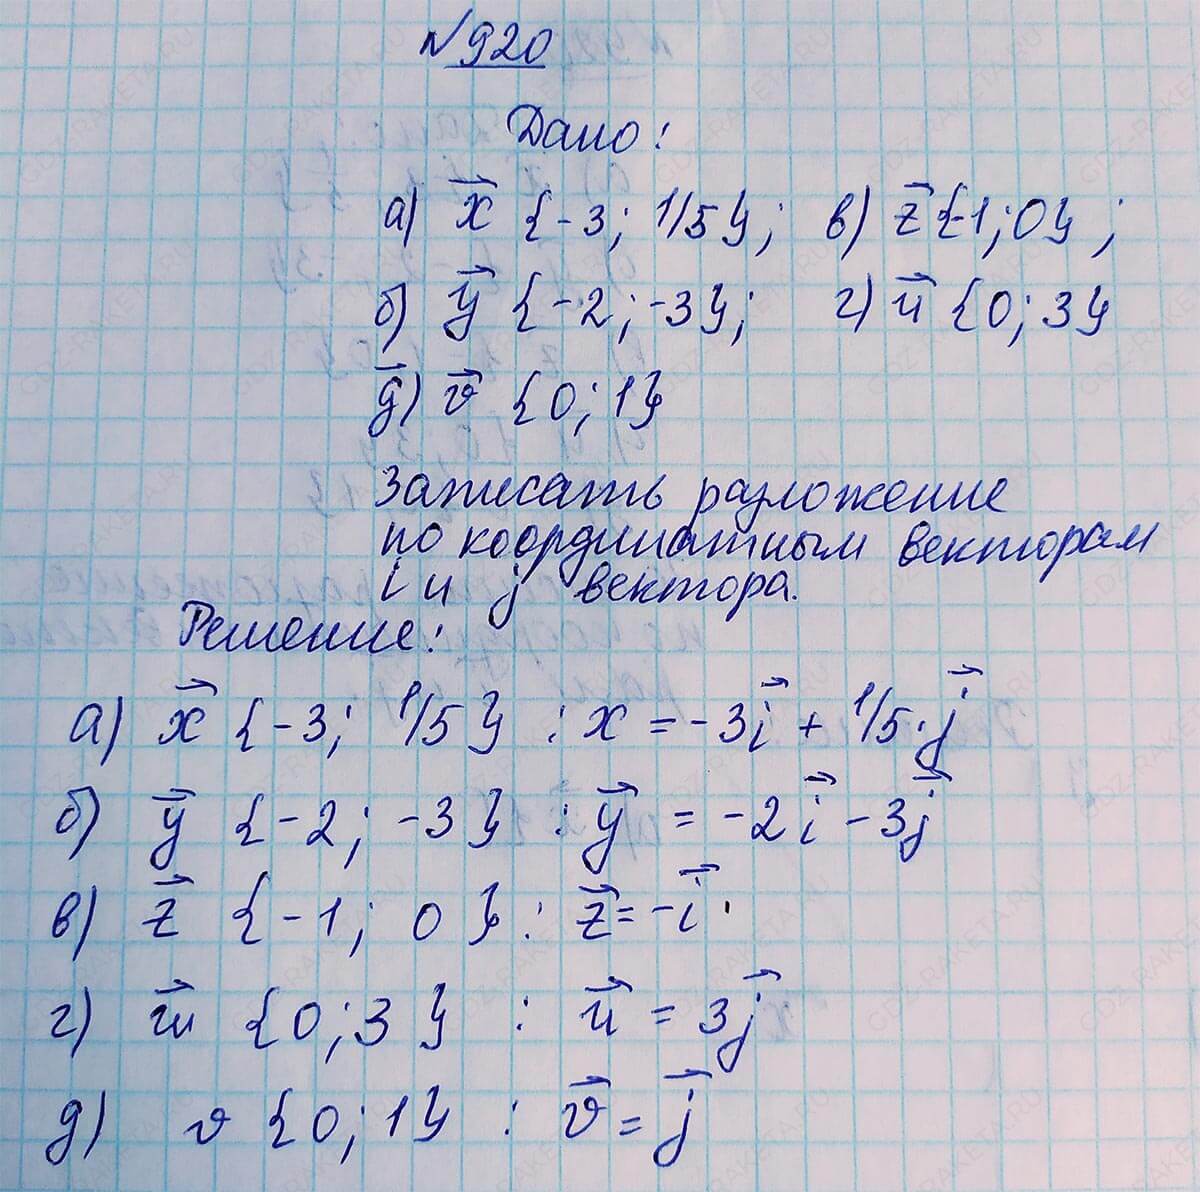 №920
Дано:
а) x⃗ {-3; 1/5}; в) z⃗ {-1; 0};
б) y⃗ {-2; -3}; г) u⃗ {0; 3}
д) v⃗ {0; 1}
Записать разложение
по координатным векторам
i и j вектора.
Решение:
а) x⃗ {-3; 1/5} : x = -3i⃗ + 1/5·j⃗
б) y⃗ {-2; -3} : y⃗ = -2i⃗ - 3j⃗
в) z⃗ {-1; 0} : z⃗ = -i⃗.
г) u⃗ {0; 3} : u⃗ = 3j⃗
д) v {0; 1} : v⃗ = j⃗
GDZ-RAKETA.RU